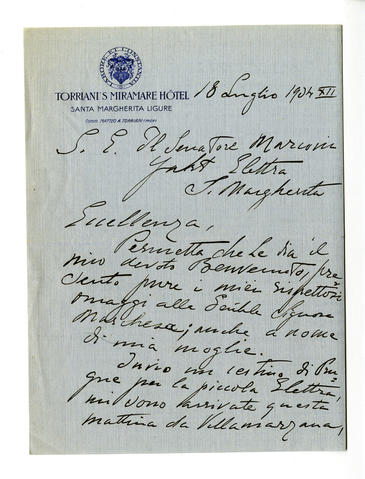 LABORE ET CONSTANTIA
TORRIANI'S MIRAMARE HÔTEL
SANTA MARGHERITA LIGURE
Comm. MATTEO A. TORRIANI
18 Luglio 1934 XII
S. E. Il Senatore Marconi
Yaht Elettra
S. Margherita
Eccellenza,
Permetta che Le dia il
mio devoto Benvenuto, pre=
sento pure i miei rispettosi
omaggi alla Gentile Signora
Marchesa; anche a nome
di mia moglie.
Invio un cestino di Pru=
gne per la piccola Elettra,
mi sono arrivate questa
mattina da Villamarzana,